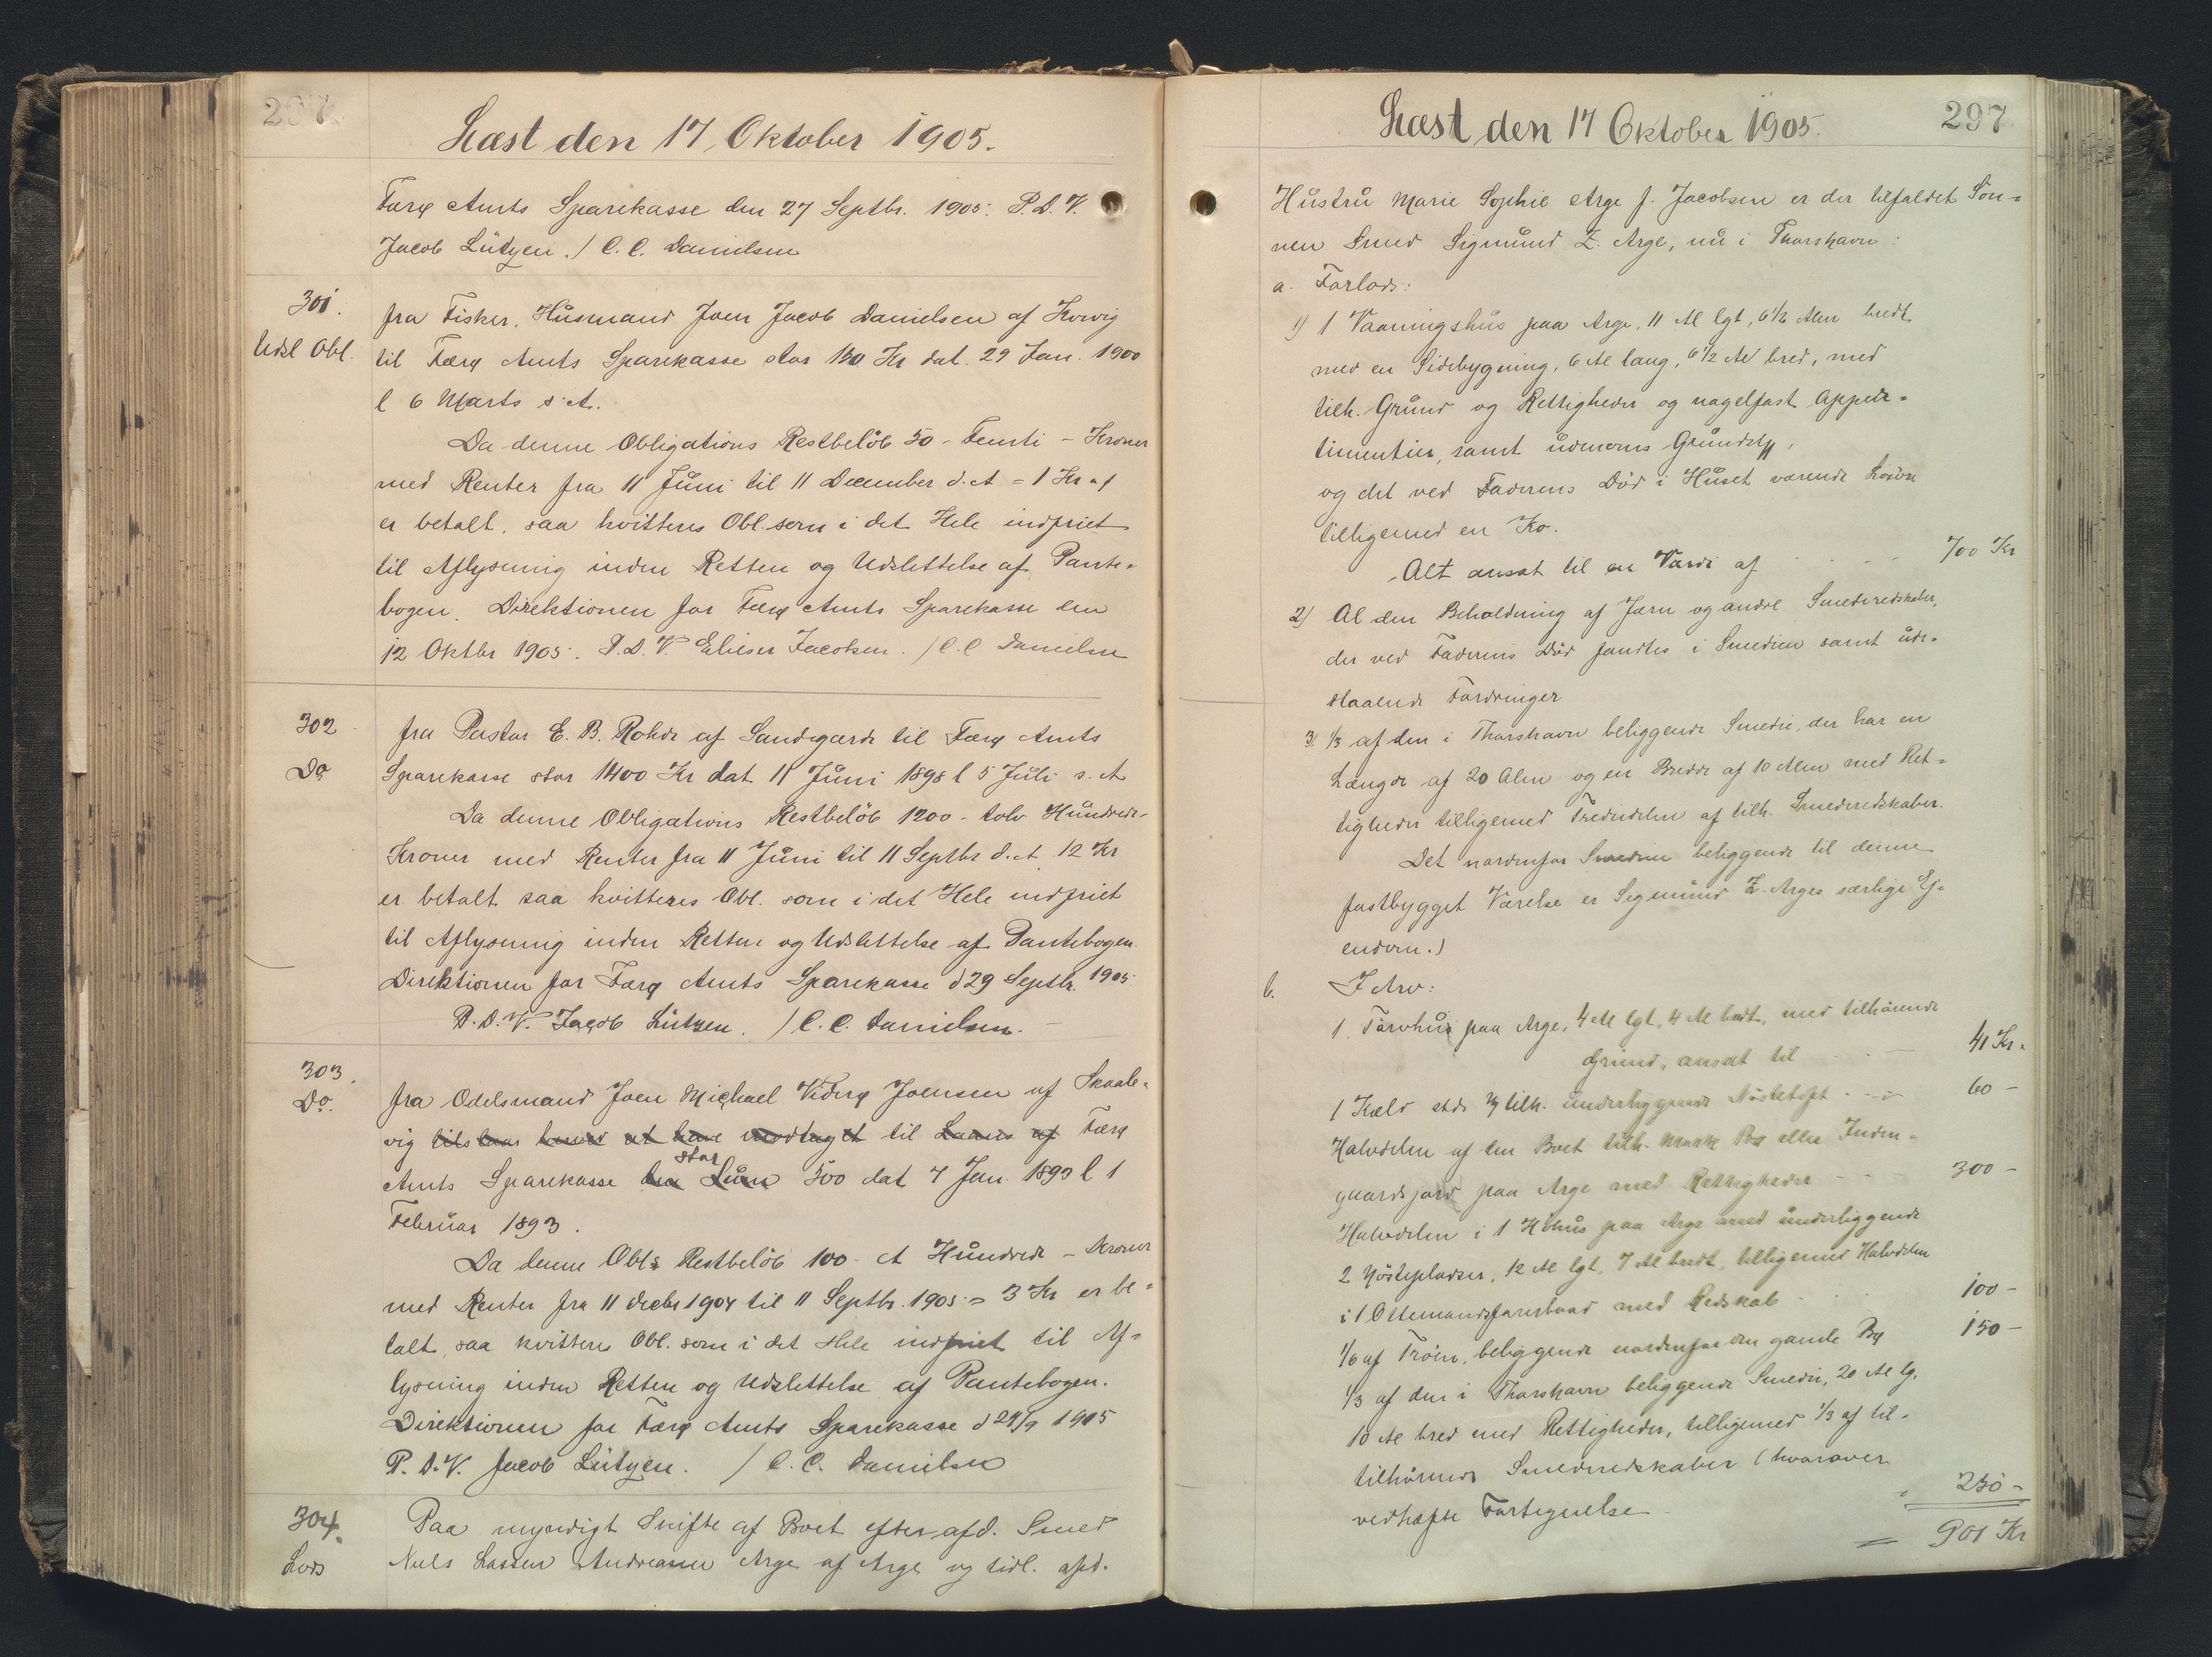 297
Læst den 17, Oktober 1905.
Færø Amts Sparekasse den 27 Septbr. 1905. P. D. V.
Jacob Lützen. / C. C. Danielsen
301.
Udsl Obl.
fra Fisker, Husmand Joen Jacob Danielsen af Kvivig
til Færø Amts Sparekasse stor 130 Kr dat. 29 Jan. 1900
l 6 Marts s. A.
Da denne Obligations Restbeløb 50 - Femti - Kroner
med Renter fra 11 Juni til 11 December d. A = 1 Kr
er betalt, saa kvitteres Obl. som i det Hele indfriet
til Aflysning inden Retten og Udslettelse af Pante-
bogen. Direktionen for Færø Amts Sparekasse den
12 Oktbr 1905. P. D. V. Elieser Jacobsen. / C. C Danielsen
302
Do
fra Pastor E. B. Rohde af Sandegærde til Færø Amts
Sparekasse stor 1400 Kr dat. 11 Juni 1898 l 5 Juli s. A
Da denne Obligations Restbeløb 1200 - tolv Hundrede-
Kroner med Renter fra 11 Juni til 11 Septbr d. A 12 Kr
er betalt saa kvitteres Obl. som i det Hele indfriet
til Aflysning inden Retten og Udslettelse af Pantebogen
Direktionen for Færø Amts Sparekasse d 29 Septbr. 1905
P. D. V. Jacob Lützen. / C. C. Danielsen.
303.
Do.
fra Odelsmand Joen Michael Viderø Joensen af Skaale-
vig tilstaar herved at have modtaget til Laans af Færø
Amts Sparekasse stor 500 dat 7 Jan. 1893 l 1
Februar 1893.
Da denne Obl.s Restbeløb 100 - Et Hundrede - Kroner
med Renter fra 11 Decbr 1904 til 11 Septbr. 1905 = 3 Kr er be-
talt, saa kvitteres Obl. som i det Hele indfriet til Af-
lysning inden Retten og Udslettelse af Pantebogen.
Direktionen for Færø Amts Sparekasse d 29/9 1905
P. D. V. Jacob Lützen. / C. C. Danielsen
304.
Lods
Paa myndigt Skifte af Boet efter afd. Smed
Niels Lassen Andreasen Arge af Arge og tidl. afd.
Læst den 17 Oktober 1905.
297
Hustru Marie Sophie Arge f. Jacobsen er der tilfaldet Søn-
nen Smed Sigmund Z. Arge, nu i Thorshavn:
a. Forlods:
1) 1 Vaaningshus paa Arge, 11 Al lgt, 6 1/2 Alen bredt
med en Sidebygning, 6 Al lang, 6 1/2 Al bred, med
tilh. Grund og Rettigheder og nagelfast Apper-
timentier, samt udmarks Grundst,
og det ved Faderens Død i Huset værende Løsøre
tilligemed en Ko.
Alt ansat til en Værdi af - - 700 Kr
2) Al den Beholdning af Jern og andre Smederedskaber,
der ved Faderens Død fandtes i Smedien samt ude-
staaende Fordringer
3) 1/3 af den i Thorshavn beliggende Smedie, der har en
Længde af 20 Alen og en Bredde af 10 Alen med Ret-
tigheder tilligemed Trediedelen af tilh. Smederedskaber.
Det nordenfor Smedien beliggende til denne
fastbygget Værelse er Sigmund Z. Arges særlige Ej-
endom.)
b. I Arv:
1. Tørvhus paa Arge, 4 Al lgt, 4 Al bredt, med tilhørende
Grund, ansat til - 41 Kr.
1 Kæld stds og tilh. underliggende - - 60 -
Halvdelen af den Boet tilh. Mark Bø eller Inden-
gaardsjord paa Arge med Rettigheder - - 300 -
Halvdelen i 1 Høhus paa Arge med underliggende
2 Nøstepladser, 12 Al lgt, 7 Al bredt, tilligemed Halvdelen
i 1 Ottemandsfarerbaad med Redskab 100 -
1/6 af Trøen, beliggende nordenfor den gamle Bø 150 -
1/3 af den i Thorshavn beliggende Smedie, 20 Al lg,
10 Al bred med Rettigheder, tilligemed 1/3 af til-
tilhørende Smederedskaber (hvorover
vedhæfte Fortegnelse - 250 -
= 901 Kr